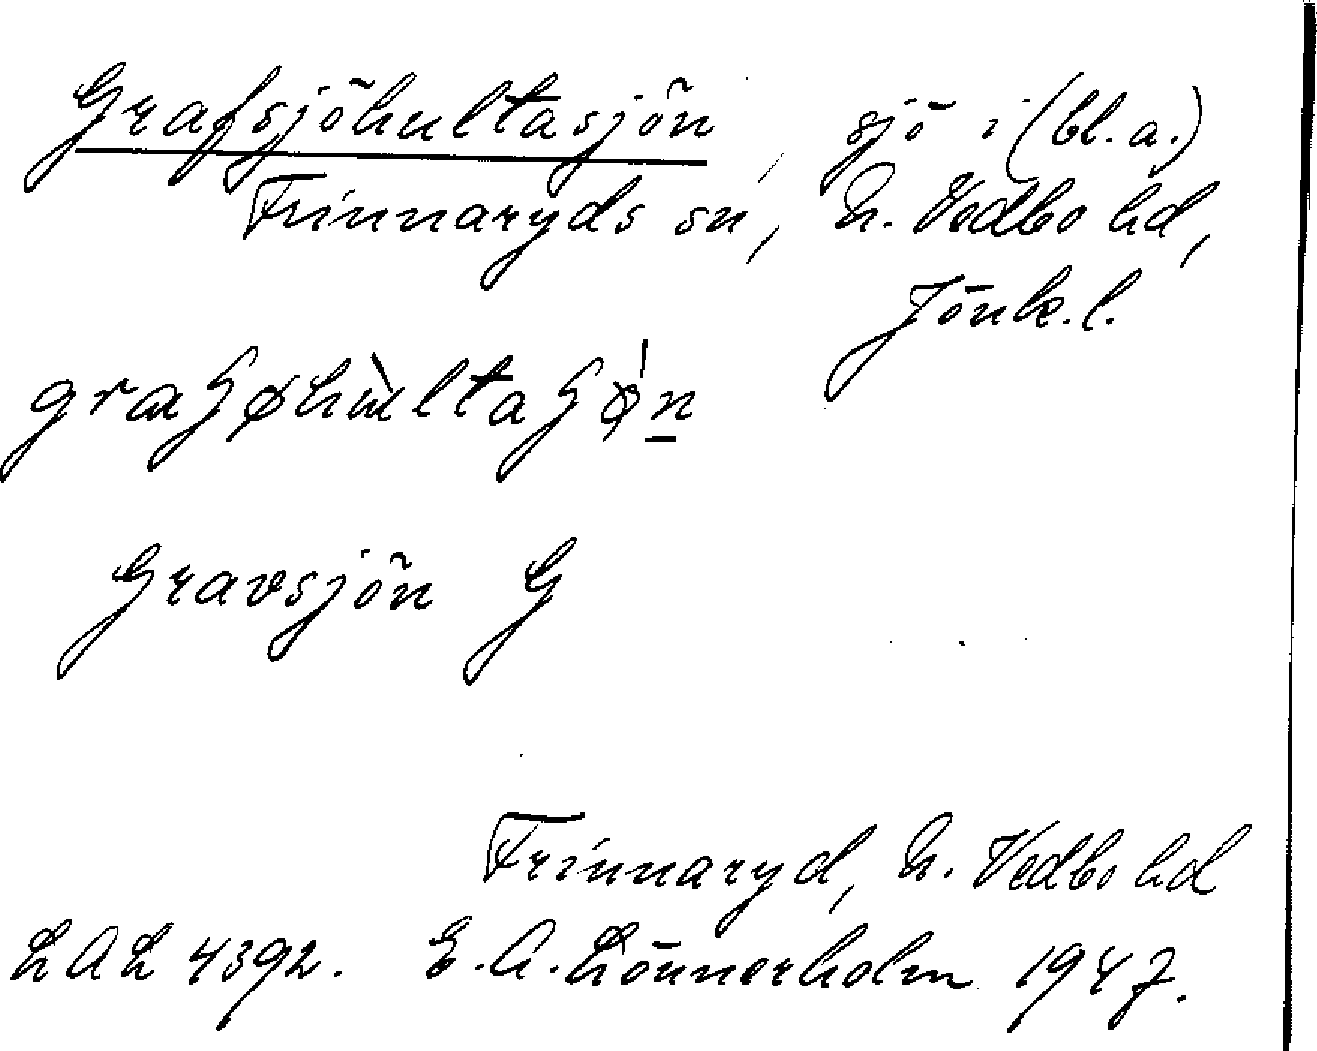 Grafsjöhultasjön, sjö i (bl.a.)
Frinnaryds sn, N. Vedbo hd,
Jönk.l.
Gravsjön G
Frinnaryd, N. Vedbo hd
LAL 4392. E.A. Lönnerholm 1947.